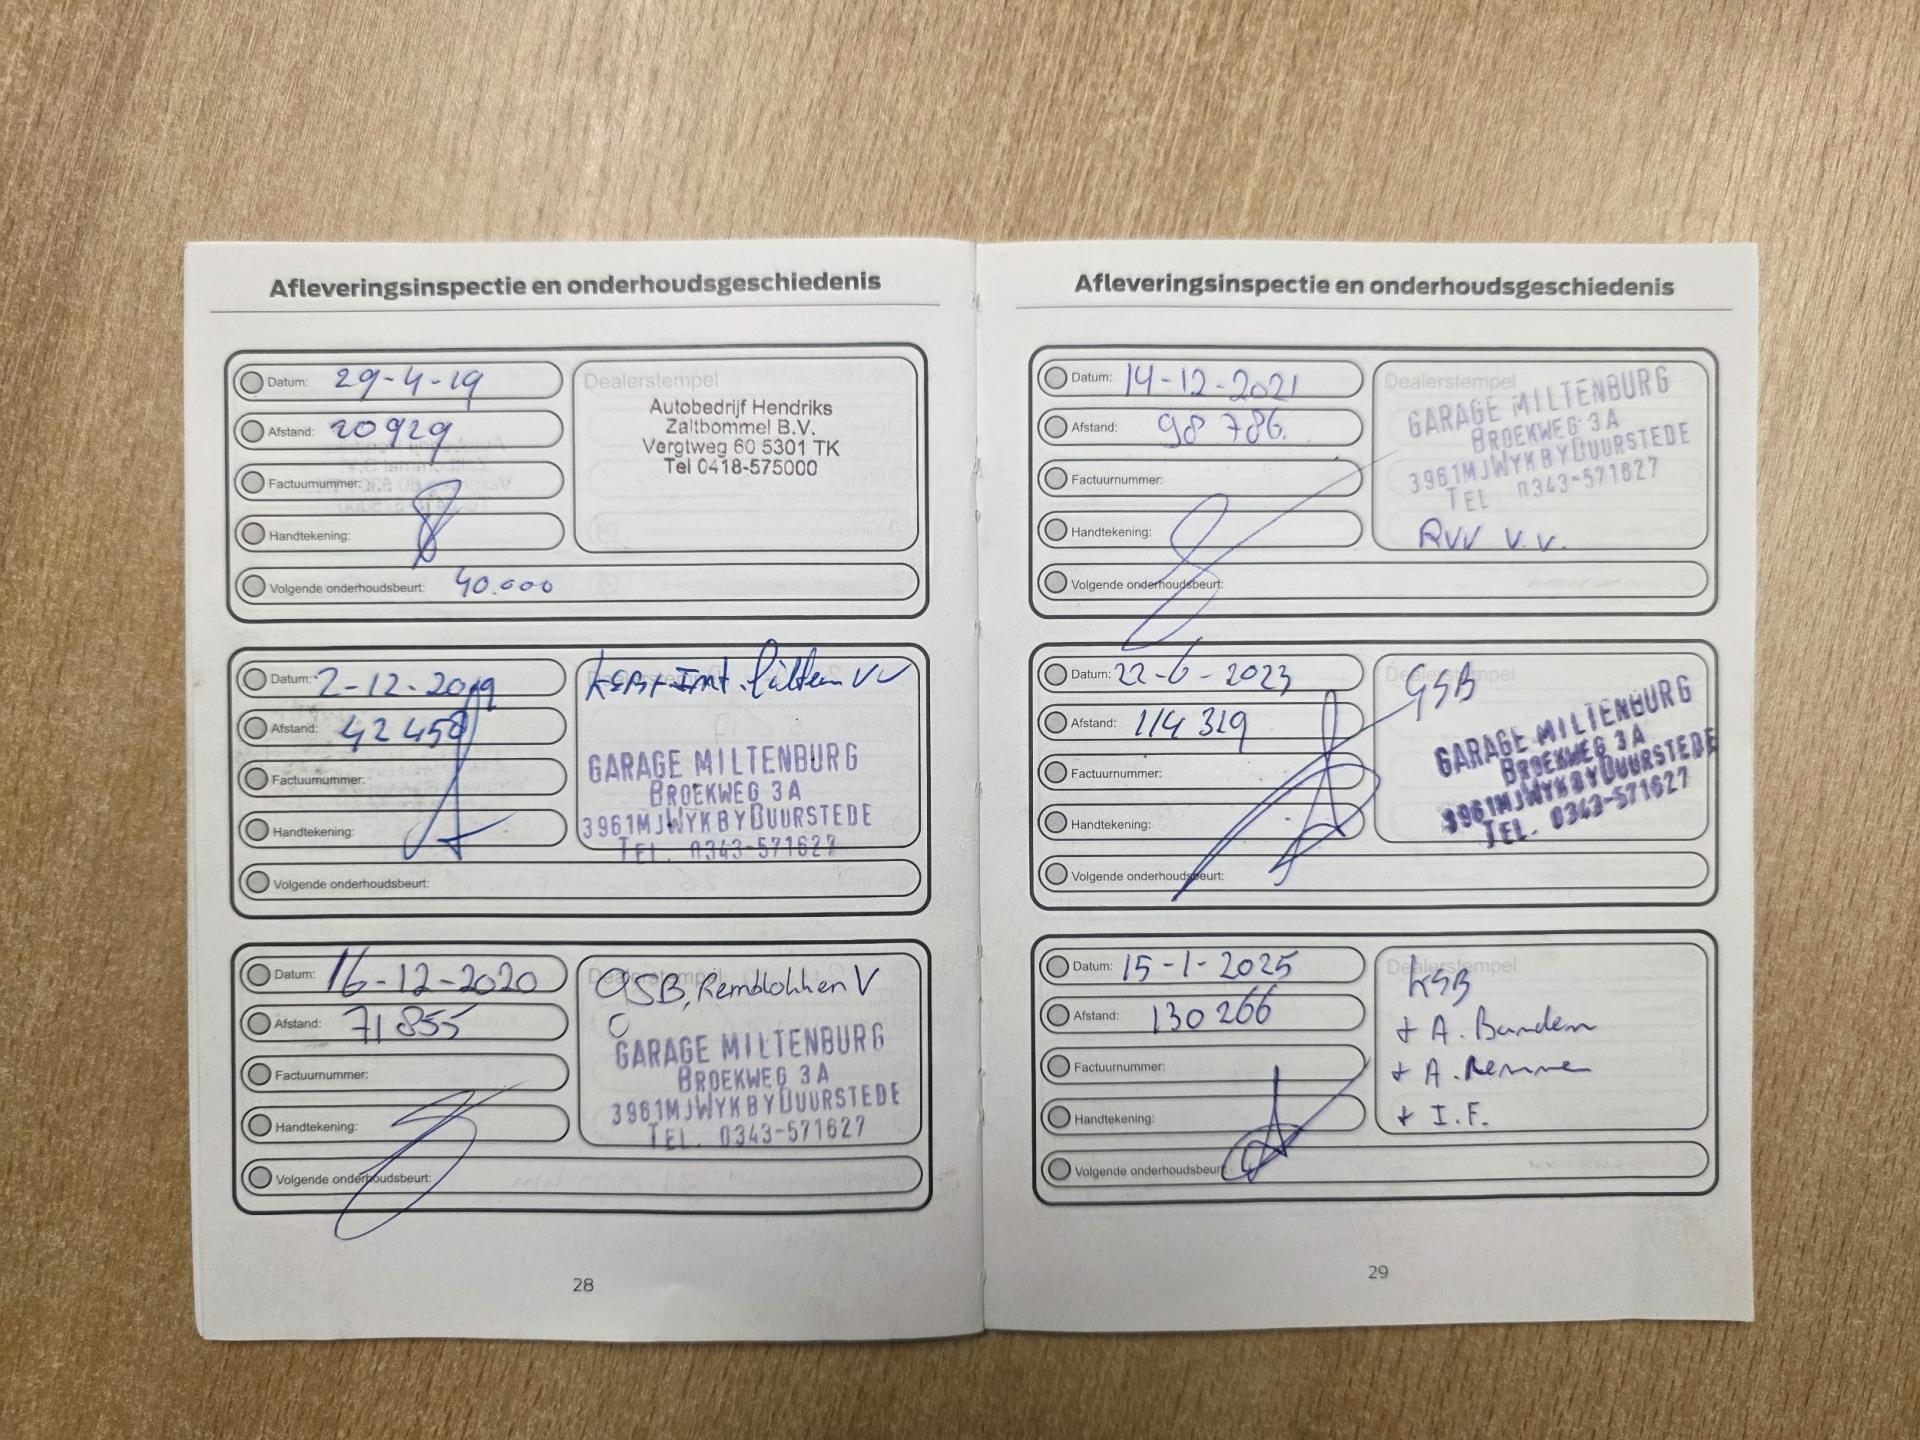 Afleveringsinspectie en onderhoudsgeschiedenis
Datum: 29-4-19
Afstand: 20929
Factuurnummer:
Handtekening:
Volgende onderhoudsbeurt: 40.000
Dealerstempel
Autobedrijf Hendriks
Zaltbommel B.V.
Vergtweg 60 5301 TK
Tel 0418-575000
Datum: 2-12-2019
Afstand: 42458
Factuurnummer:
Handtekening:
Volgende onderhoudsbeurt:
GARAGE MILTENBURG
BROEKWEG 3A
3961MJ WYK BY DUURSTEDE
TEL. 0343-571627
Datum: 16-12-2020
Afstand: 71855
Factuurnummer:
Handtekening:
Volgende onderhoudsbeurt:
Dealerstempel
GSB, Remblokken V
GARAGE MILTENBURG
BROEKWEG 3A
3961MJ WYK BY DUURSTEDE
TEL. 0343-571627
28
Afleveringsinspectie en onderhoudsgeschiedenis
Datum: 14-12-2021
Afstand: 98 786.
Factuurnummer:
Handtekening:
Volgende onderhoudsbeurt:
Dealerstempel
GARAGE MILTENBURG
BROEKWEG 3A
3961MJ WYK BY DUURSTEDE
TEL. 0343-571627
RVV V.V.
Datum: 22-6-2023
Afstand: 114 319
Factuurnummer:
Handtekening:
Volgende onderhoudsbeurt:
Dealerstempel
GSB
GARAGE MILTENBURG
BROEKWEG 3A
3961MJ WYK BY DUURSTEDE
TEL. 0343-571627
Datum: 15-1-2025
Afstand: 130 266
Factuurnummer:
Handtekening:
Volgende onderhoudsbeurt:
Dealerstempel
KSB
+ A. Banden
+ A. Remmen
+ I.F.
29